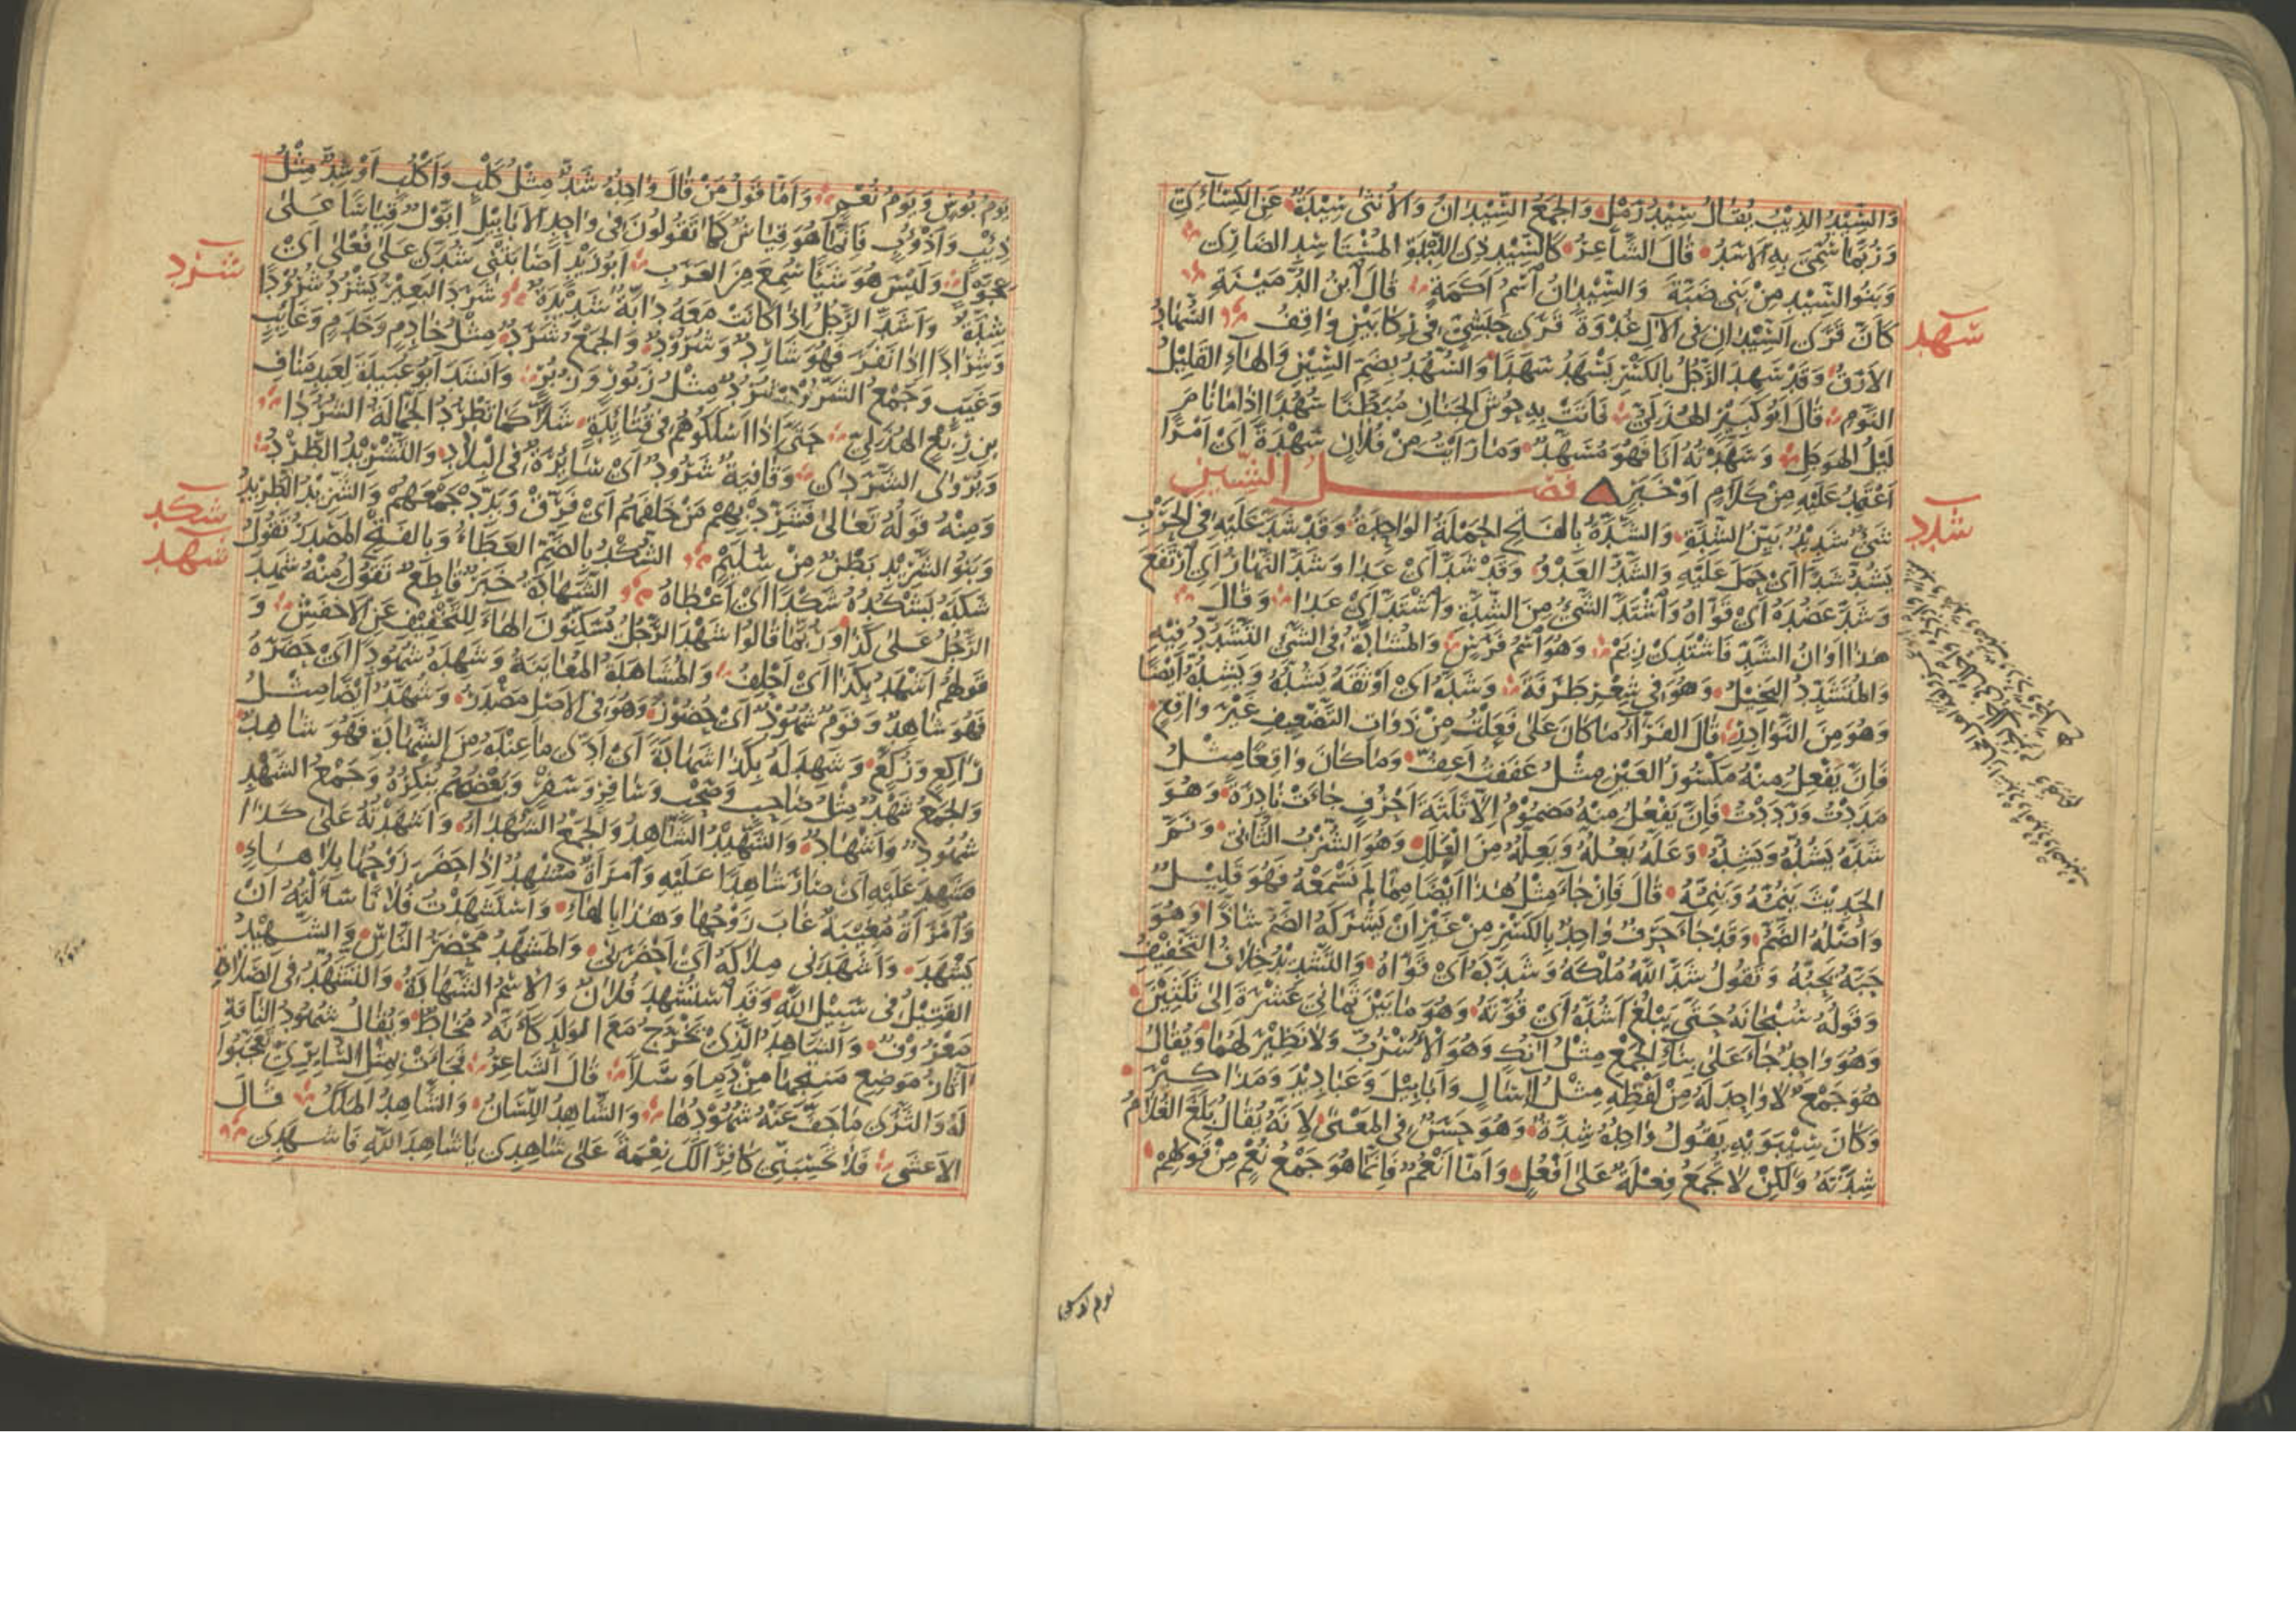 وَالسِّيْدُ الذِّيْبُ يُقَالُ سِيْدُ رَمْلٍ وَالجَمْعُ السِّيْدَانُ وَالاُنْثٰى سِيْدَةٌ عَنِ الكِسَآئِيِّ
وَرُبَّمَا سُمِّيَ بِهِ الاَسَدُ قَالَ الشَّاعِرُ كَالسِّيْدِ ذِي اللِّبْدَةِ المُسْتَاسِدِ الضَارِي
وَبَنُو السِّيْدِ مِنْ بَنِي ضَبَّةَ وَالسِّيْدَانُ اسْمُ اَكَمَةٍ قَالَ ابْنُ الدُّمَيْنَةِ
كَاَنَّ قَرَى السِّيْدَانِ فِي الآلِ غُدْوَةً قَرَى حَبَشِيٍّ فِي رِكَابَيْنِ وَاقِفُ السُّهَادُ
سهد
الاَرَقُ وَقَدْ سَهِدَ الرَّجُلُ بِالكَسْرِ يَسْهَدُ سَهَدًا وَالسُّهُدُ بِضَمِّ السِّيْنِ وَالهَاءِ القَلِيْلُ
النَّوْمِ قَالَ اَبُو كَبِيْرٍ الهُذَلِيُّ فَاَتَتْ بِهِ حُوْشَ الجَنَانِ مُبَطَّنًا سُهُدًا اِذَا مَا نَامَ
لَيْلُ الهَوْجَلِ وَسَهَّدْتُهُ اَنَا فَهُوَ مُسَهَّدٌ وَمَا رَاَيْتُ مِنْ فُلَانٍ سَهْدَةً اَيْ اَمْرًا
اَعْتَمِدُ عَلَيْهِ مِنْ كَلَامٍ اَوْ خَيْرٍ فصل الشين
شدد
شَيْءٌ شَدِيْدٌ بَيِّنُ الشِّدَّةِ وَالشَّدَّةُ بِالفَتْحِ الحَمْلَةُ الوَاحِدَةُ وَقَدْ شَدَّ عَلَيْهِ فِي الحَرْبِ
يَشُدُّ شَدًّا اَيْ حَمَلَ عَلَيْهِ وَالشَّدُّ العَدْوُ وَقَدْ شَدَّ اَيْ عَدَا وَشَدَّ النَّهَارُ اَيْ ارْتَفَعَ
وَشَدَّ عَضُدَهُ اَيْ قَوَّاهُ وَاشْتَدَّ الشَّيْءُ مِنَ الشِّدَّةِ وَاشْتَدَّ اَيْ عَدَا وَقَالَ
هٰذَا اَوَانُ الشَّدِّ فَاشْتَدِّي زِيَمْ وَهُوَ اسْمُ فَرَسٍ وَالمُشَادَّةُ فِي الشَّيْءِ التَّشَدُّدُ فِيْهِ
وَالمُتَشَدِّدُ البَخِيْلُ وَهُوَ فِي شِعْرِ طَرَفَةَ وَشَدَّهُ اَيْ اَوْثَقَهُ يَشُدُّهُ وَيَشِدُّهُ اَيْضًا
وَهُوَ مِنَ النَّوَادِرِ قَالَ الفَرَّآءُ مَا كَانَ عَلٰى فَعَلْتُ مِنْ ذَوَاتِ التَّضْعِيْفِ غَيْرَ وَاقِعٍ
فَاِنَّ يَفْعِلُ مِنْهُ مَكْسُورُ العَيْنِ مِثْلُ عَفَفْتُ اَعِفُّ وَمَا كَانَ وَاقِعًا مِثْلُ
مَدَدْتُ وَرَدَدْتُ فَاِنَّ يَفْعُلُ مِنْهُ مَضْمُوْمٌ اِلَّا ثَلٰثَةَ اَحْرُفٍ جَاءَتْ نَادِرَةً وَهُوَ
شَدَّهُ يَشُدُّهُ وَيَشِدُّهُ وَعَلَّهُ يَعُلُّهُ وَيَعِلُّهُ مِنَ العَلَلِ وَهُوَ الشُّرْبُ الثَّانِي وَنَمَّ
الحَدِيْثَ يَنُمُّهُ وَيَنِمُّهُ قَالَ فَاِنْ جَآءَ مِثْلُ هٰذَا اَيْضًا مِمَّا لَمْ نَسْمَعْهُ فَهُوَ قَلِيْلٌ
وَاَصْلُهُ الضَّمُّ وَقَدْ جَآءَ حَرْفٌ وَاحِدٌ بِالكَسْرِ مِنْ غَيْرِ اَنْ يَشْرَكَهُ الضَّمُّ شَاذًّا وَهُوَ
حَبَّهُ يَحِبُّهُ وَتَقُوْلُ شَدَّ اللّٰهُ مُلْكَهُ وَشَدَّدَهُ اَيْ قَوَّاهُ وَالتَّشْدِيْدُ خِلَافُ التَّخْفِيْفِ
وَقَوْلُهُ سُبْحَانَهُ حَتّٰى يَبْلُغَ اَشُدَّهُ اَيْ قُوَّتَهُ وَهُوَ مَا بَيْنَ ثَمَانِيَ عَشْرَةَ اِلٰى ثَلٰثِيْنَ
وَهُوَ وَاحِدٌ جَآءَ عَلٰى بِنَاءِ الجَمْعِ مِثْلُ اٰنُكٍ وَهُوَ الاُسْرُبُّ وَلَا نَظِيْرَ لَهُمَا وَيُقَالُ
هُوَ جَمْعٌ لَا وَاحِدَ لَهُ مِنْ لَفْظِهِ مِثْلُ اٰسَالٍ وَاَبَابِيْلَ وَعَبَادِيْدَ وَمَذَاكِيْرَ
وَكَانَ سِيْبَوَيْهِ يَقُوْلُ وَاحِدُهُ شِدَّةٌ وَهُوَ حَسَنٌ فِي المَعْنٰى لِاَنَّهُ يُقَالُ بَلَغَ الغُلَامُ
شِدَّتَهُ وَلٰكِنْ لَا تُجْمَعُ فِعْلَةٌ عَلٰى اَفْعُلٍ وَاَمَّا اَنْعُمٌ فَاِنَّمَا هُوَ جَمْعُ نُعْمٍ مِنْ قَوْلِهِمْ
يوم بوس
يَوْمُ بُوْسٍ وَيَوْمُ نُعْمٍ وَاَمَّا قَوْلُ مَنْ قَالَ وَاحِدُهُ شَدٌّ مِثْلُ كَلْبٍ وَاَكْلُبٍ اَوْ شِدٌّ مِثْلُ
ذِئْبٍ وَاَذْؤُبٍ فَاِنَّمَا هُوَ قِيَاسٌ كَمَا تَقُوْلُوْنَ فِي وَاحِدِ الاَبَابِيْلِ اِبَّوْلٌ قِيَاسًا عَلٰى
عِجَّوْلٍ وَلَيْسَ هُوَ شَيْئًا سُمِعَ مِنَ العَرَبِ اَبُو زَيْدٍ اَصَابَتْنِي شُدَّى عَلٰى فُعْلٰى اَيْ
شرد
شِدَّةٌ وَاَشَدَّ الرَّجُلُ اِذَا كَانَتْ مَعَهُ دَابَّةٌ شَدِيْدَةٌ شَرَدَ البَعِيْرُ يَشْرُدُ شُرُوْدًا
وَشِرَادًا اِذَا نَفَرَ فَهُوَ شَارِدٌ وَشَرُوْدٌ وَالجَمْعُ شَرَدٌ مِثْلُ خَادِمٍ وَخَدَمٍ وَغَائِبٍ
وَغَيَبٍ وَجَمْعُ الشَّرُوْدِ شُرُدٌ مِثْلُ زَبُوْرٍ وَزُبُرٍ وَاَنْشَدَ اَبُو عُبَيْدَةَ لِعَبْدِ مَنَافِ
بْنِ رِبْعٍ الهُذَلِيِّ حَتّٰى اِذَا اَسْلَكُوْهُمْ فِي قُتَائِدَةٍ شَلًّا كَمَا تَطْرُدُ الجَمَّالَةُ الشُّرُدَا
وَيُرْوٰى الشَّرَدَا وَقَافِيَةٌ شَرُوْدٌ اَيْ سَائِرَةٌ فِي البِلَادِ وَالتَّشْرِيْدُ الطَّرْدُ
وَمِنْهُ قَوْلُهُ تَعَالٰى فَشَرِّدْ بِهِمْ مَنْ خَلْفَهُمْ اَيْ فَرِّقْ وَبَدِّدْ جَمْعَهُمْ وَالشَّرِيْدُ الطَّرِيْدُ
شكد
وَبَنُو الشَّرِيْدِ بَطْنٌ مِنْ سُلَيْمٍ الشُّكْدُ بِالضَّمِّ العَطَاءُ وَبِالفَتْحِ المَصْدَرُ تَقُوْلُ
شهد
شَكَدَهُ يَشْكُدُهُ شَكْدًا اَيْ اَعْطَاهُ الشَّهَادَةُ خَبَرٌ قَاطِعٌ تَقُوْلُ مِنْهُ شَهِدَ
الرَّجُلُ عَلٰى كَذَا وَرُبَّمَا قَالُوا شَهْدَ الرَّجُلُ يُسَكِّنُوْنَ الهَاءَ لِلتَّخْفِيْفِ عَنِ الاَخْفَشِ وَ
قَوْلُهُمْ اَشْهَدُ بِكَذَا اَيْ اَحْلِفُ وَالمُشَاهَدَةُ المُعَايَنَةُ وَشَهِدَهُ شُهُوْدًا اَيْ حَضَرَهُ
فَهُوَ شَاهِدٌ وَقَوْمٌ شُهُوْدٌ اَيْ حُضُوْرٌ وَهُوَ فِي الاَصْلِ مَصْدَرٌ وَشُهَّدٌ اَيْضًا مِثْلُ
رَاكِعٍ وَرُكَّعٍ وَشَهِدَ لَهُ بِكَذَا شَهَادَةً اَيْ اَدّٰى مَا عِنْدَهُ مِنَ الشَّهَادَةِ فَهُوَ شَاهِدٌ
وَالجَمْعُ شَهْدٌ مِثْلُ صَاحِبٍ وَصَحْبٍ وَسَافِرٍ وَسَفْرٍ وَبَعْضُهُمْ يُنْكِرُهُ وَجَمْعُ الشَّهْدِ
شُهُوْدٌ وَاَشْهَادٌ وَالشَّهِيْدُ الشَّاهِدُ وَالجَمْعُ الشُّهَدَاءُ وَاَشْهَدْتُهُ عَلٰى كَذَا
فَشَهِدَ عَلَيْهِ اَيْ صَارَ شَاهِدًا عَلَيْهِ وَامْرَاَةٌ مُشْهِدٌ اِذَا حَضَرَ زَوْجُهَا بِلَا هَاءٍ
وَامْرَاَةٌ مُغِيْبَةٌ غَابَ زَوْجُهَا وَهٰذَا بِالهَاءِ وَاسْتَشْهَدْتُ فُلَانًا سَاَلْتُهُ اَنْ
يَشْهَدَ وَاَشْهَدَنِي مِلَاكَهُ اَيْ اَحْضَرَنِي وَالمَشْهَدُ مَحْضَرُ النَّاسِ وَالشَّهِيْدُ
القَتِيْلُ فِي سَبِيْلِ اللّٰهِ وَقَدِ اسْتُشْهِدَ فُلَانٌ وَالاِسْمُ الشَّهَادَةُ وَالتَّشَهُّدُ فِي الصَّلٰوةِ
مَعْرُوْفٌ وَالشَّاهِدُ الَّذِي يَخْرُجُ مَعَ الوَلَدِ كَاَنَّهُ مُخَاطٌ وَيُقَالُ شُهُوْدُ النَّاقَةِ
اٰثَارُ مَوْضِعِ مَنْتِجِهَا مِنْ دَمٍ اَوْ سَلًا قَالَ الشَّاعِرُ فَجَاءَتْ بِمِثْلِ السَّابِرِيِّ تَعَجَّبُوا
لَهُ وَالثَّرٰى مَا جَفَّ عَنْهُ شُهُوْدُهَا وَالشَّاهِدُ اللِّسَانُ وَالشَّاهِدُ المَلَكُ قَالَ
الاَعْشٰى فَلَا تَحْسِبَنِّي كَافِرًا لَكَ نِعْمَةً عَلٰى شَاهِدِي يَا شَاهِدَ اللّٰهِ فَاشْهَدِ